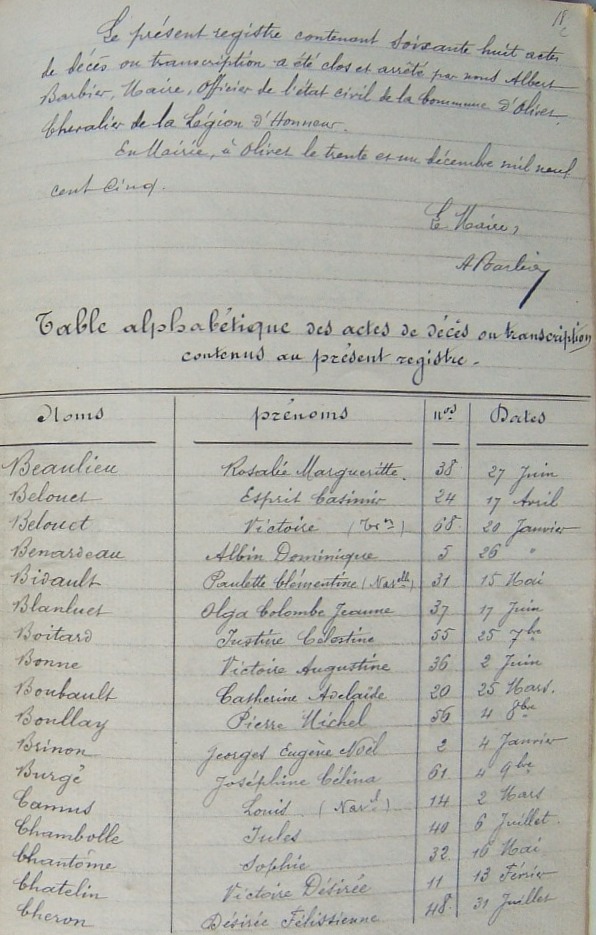 Le présent registre contenant soixante huit actes
de décès ou transcription a été clos et arrêté par nous Albert
Barbier, Maire, Officier de l'état civil de la Commune d'Olivet
Chevalier de la Légion d'Honneur.
En Mairie, à Olivet le trente et un décembre mil neuf
cent cinq.
Le Maire,
A Barbier
Table alphabétique des actes de décès ou transcription
contenus au présent registre.
Noms prénoms nos Dates
Beaulieu Rosalie Margueritte. 38 27 Juin
Belouet Esprit Casimir 24 17 Avril
Belouet Victoire (Tron) 68 20 Janvier
Benardeau Albin Dominique 5 26 "
Bidault Paulette Clémentine (Narelle) 31 15 Mai
Blanluet Olga Colombe Jeanne 37 17 Juin
Boitard Justine Célestine 55 25 7bre
Bonne Victoire Augustine 36 2 Juin
Boubault Catherine Adelaïde 20 25 Mars.
Boullay Pierre Michel 56 4 8bre
Brinon Georges Eugène Noël 2 4 Janvier
Burgé Joséphine Célina 61 4 9bre
Camus Louis 14 2 Mars
Chambolle Jules 40 6 Juillet
Chantôme Sophie 32 16 Mai
Chatelin Victoire Désirée 11 13 Février
Cheron Désirée Félissienne 48 31 Juillet